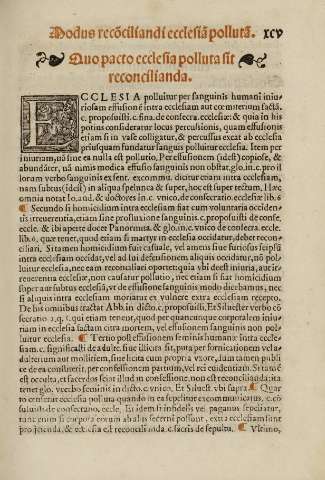 Modus recõciliandi ecclesiã pollutã. xcv
Quo pacto ecclesia polluta sit
reconcilianda.
ECCLESIA polluitur per sanguinis humani iniu
riosam effusionẽ intra ecclesiam aut cœmiterium factã.
c. proposuisti. c. fina. de consecra. ecclesiæ: & quia in his
potius consideratur locus percussionis, quam effusionis
etiam si in vase colligatur, & percussus exeat ab ecclesia
priusquam fundatur sanguis polluitur ecclesia. Item per
iniuriam, nã sine ea nulla est pollutio. Per effusionem (idest) copiose, &
abundãter, nã nimis modica effusio sanguinis non obstat, glo. in. c. pro il
lorum verbo sanguinis ex sent. excommu. dicitur etiam intra ecclesiam,
nam subtus (idest) in aliqua spelunca & super, hoc est super tectum, Hæc
omnia notat Io. and. & doctores in c. vnico, de consecratio. ecclesiæ lib. 6
Secundo si homicidium intra ecclesiam fiat cum voluntaria occiden
tis irreuerentia, etiam sine profusione sanguinis. c. proposuisti de conse.
eccle. & ibi aperte docet Panormita. & glo. in c. vnico de consecra. eccle.
lib. 6. quæ tenet, quod etiam si martyr in ecclesia occidatur, debet recon
ciliari. Si tamen homicidium fuit casuale, vel amens siue furiosus seipsũ
intra ecclesiam occidat, vel ad sui defensionem aliquis occidatur, nõ pol
luitur ecclesia, nec eam reconciliari oportet: quia ybi deest iniuria, aut ir
reuerentia ecclesiæ, non causatur pollutio, nec etiam si fiat homicidium
super aut subtus ecclesiã, vt de effusione sanguinis modo dicebamus, nec
si aliquis intra ecclesiam moriatur ex vulnere extra ecclesiam recepto.
De his omnibus tractat Abb. in dicto. c. proposuisti, Et Siluester verbo cõ
secratio. 2. q. qui etiam tenet, quod per quamcunque corporalem iniu
riam in ecclesia factam citra mortem, vel effusionem sanguinis non pol
luitur ecclesia. Tertio post effusionem seminis humanæ intra eccle
siam. c. significasti de adulte. siue illicita sit, puta per fornicationem vel a
dulterium aut mollitiem, siue licita cum propria vxore, si
ce de ea constiterit, per confessionem partium, vel rei euidentiam. Si tamẽ
est occulta, et sacerdos sciat illud in confessione, non est reconcilianda: ita
tenet glo. verbo seminis in dicto. c. vnico. Et Siluest. vbi supra. Quar
to censetur ecclesia polluta quando in ea sepelitur excommunicatus. c. cõ
suluisti de consecratio. eccle. Et idem si infidelis vel paganus sepeliatur,
tunc enim si corpora eorum ab alijs extrahi possunt, extra ecclesiam sunt
projicienda, & ecclesia est reconcilianda. c. sacris de sepultu. Vltimo,